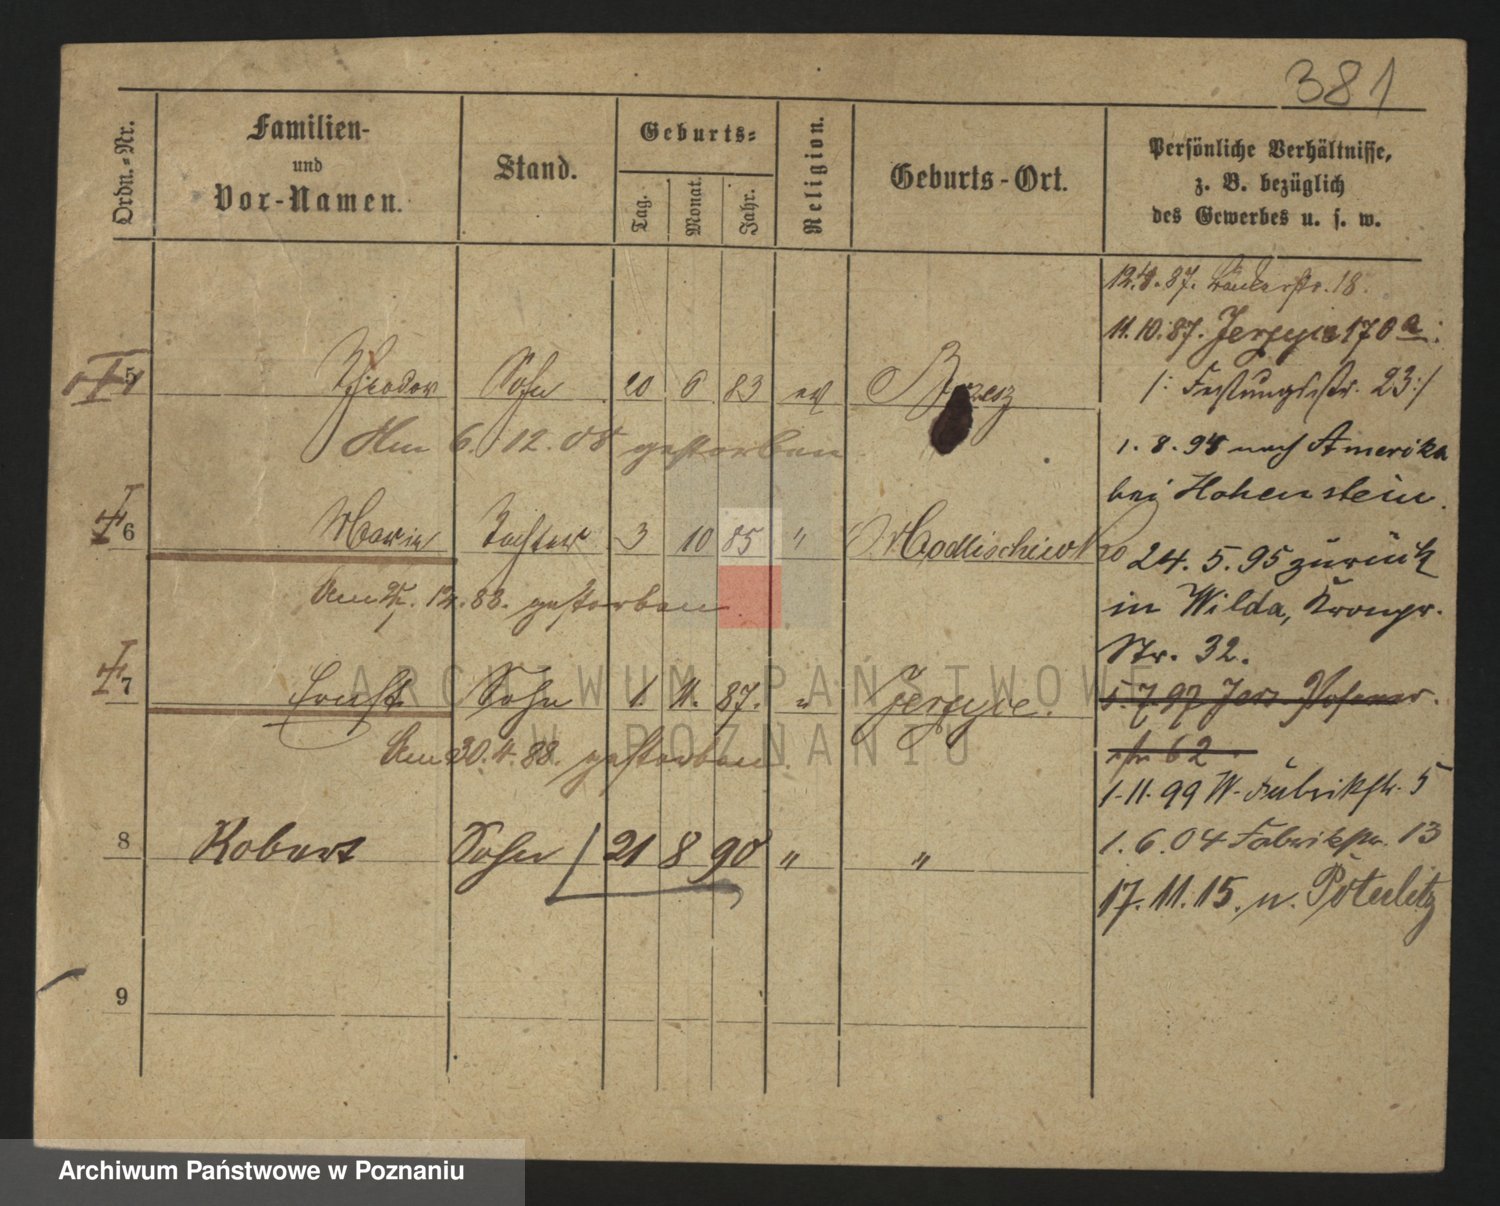 381
Ordn.-Nr.
Familien-
und
Vor-Namen.
Stand.
Geburts-
Tag.
Monat.
Jahr.
Religion.
Geburts-Ort.
Persönliche Verhältnisse,
z. B. bezüglich
des Gewerbes u. s. w.
12.4.87. 18.
11.10.87. Jerzyce 170a
5 Theodor Sohn 20 6 83 ev
/: Festungsstr. 23 :/
Am 6.12.08 gestorben
1.8.94 nach Amerika
bei Hohenstein.
6 Marie Tochter 3 10 85 "
24.5.95 zurück
Am 12.88. gestorben
in Wilda, Kronpr.
Str. 32.
7 Ernst Sohn 1. 11. 87. " Jerzyce.
5.7.97 Jers. Posener
str 62
Am 30.4.88. gestorben.
1.11.99 W. Fabrikstr. 5
8 Robert Sohn 21 8 90 " "
1.6.04 Fabrikstr. 13
17.11.15. n.
9
ARCHIWUM PAŃSTWOWE
W POZNANIU
Archiwum Państwowe w Poznaniu